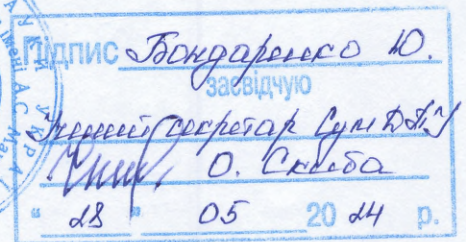 Підпис Бондаренко Ю.
засвідчую
Учений секретар СумДПУ
О. Скиба
" 28 " 05 20 24 р.